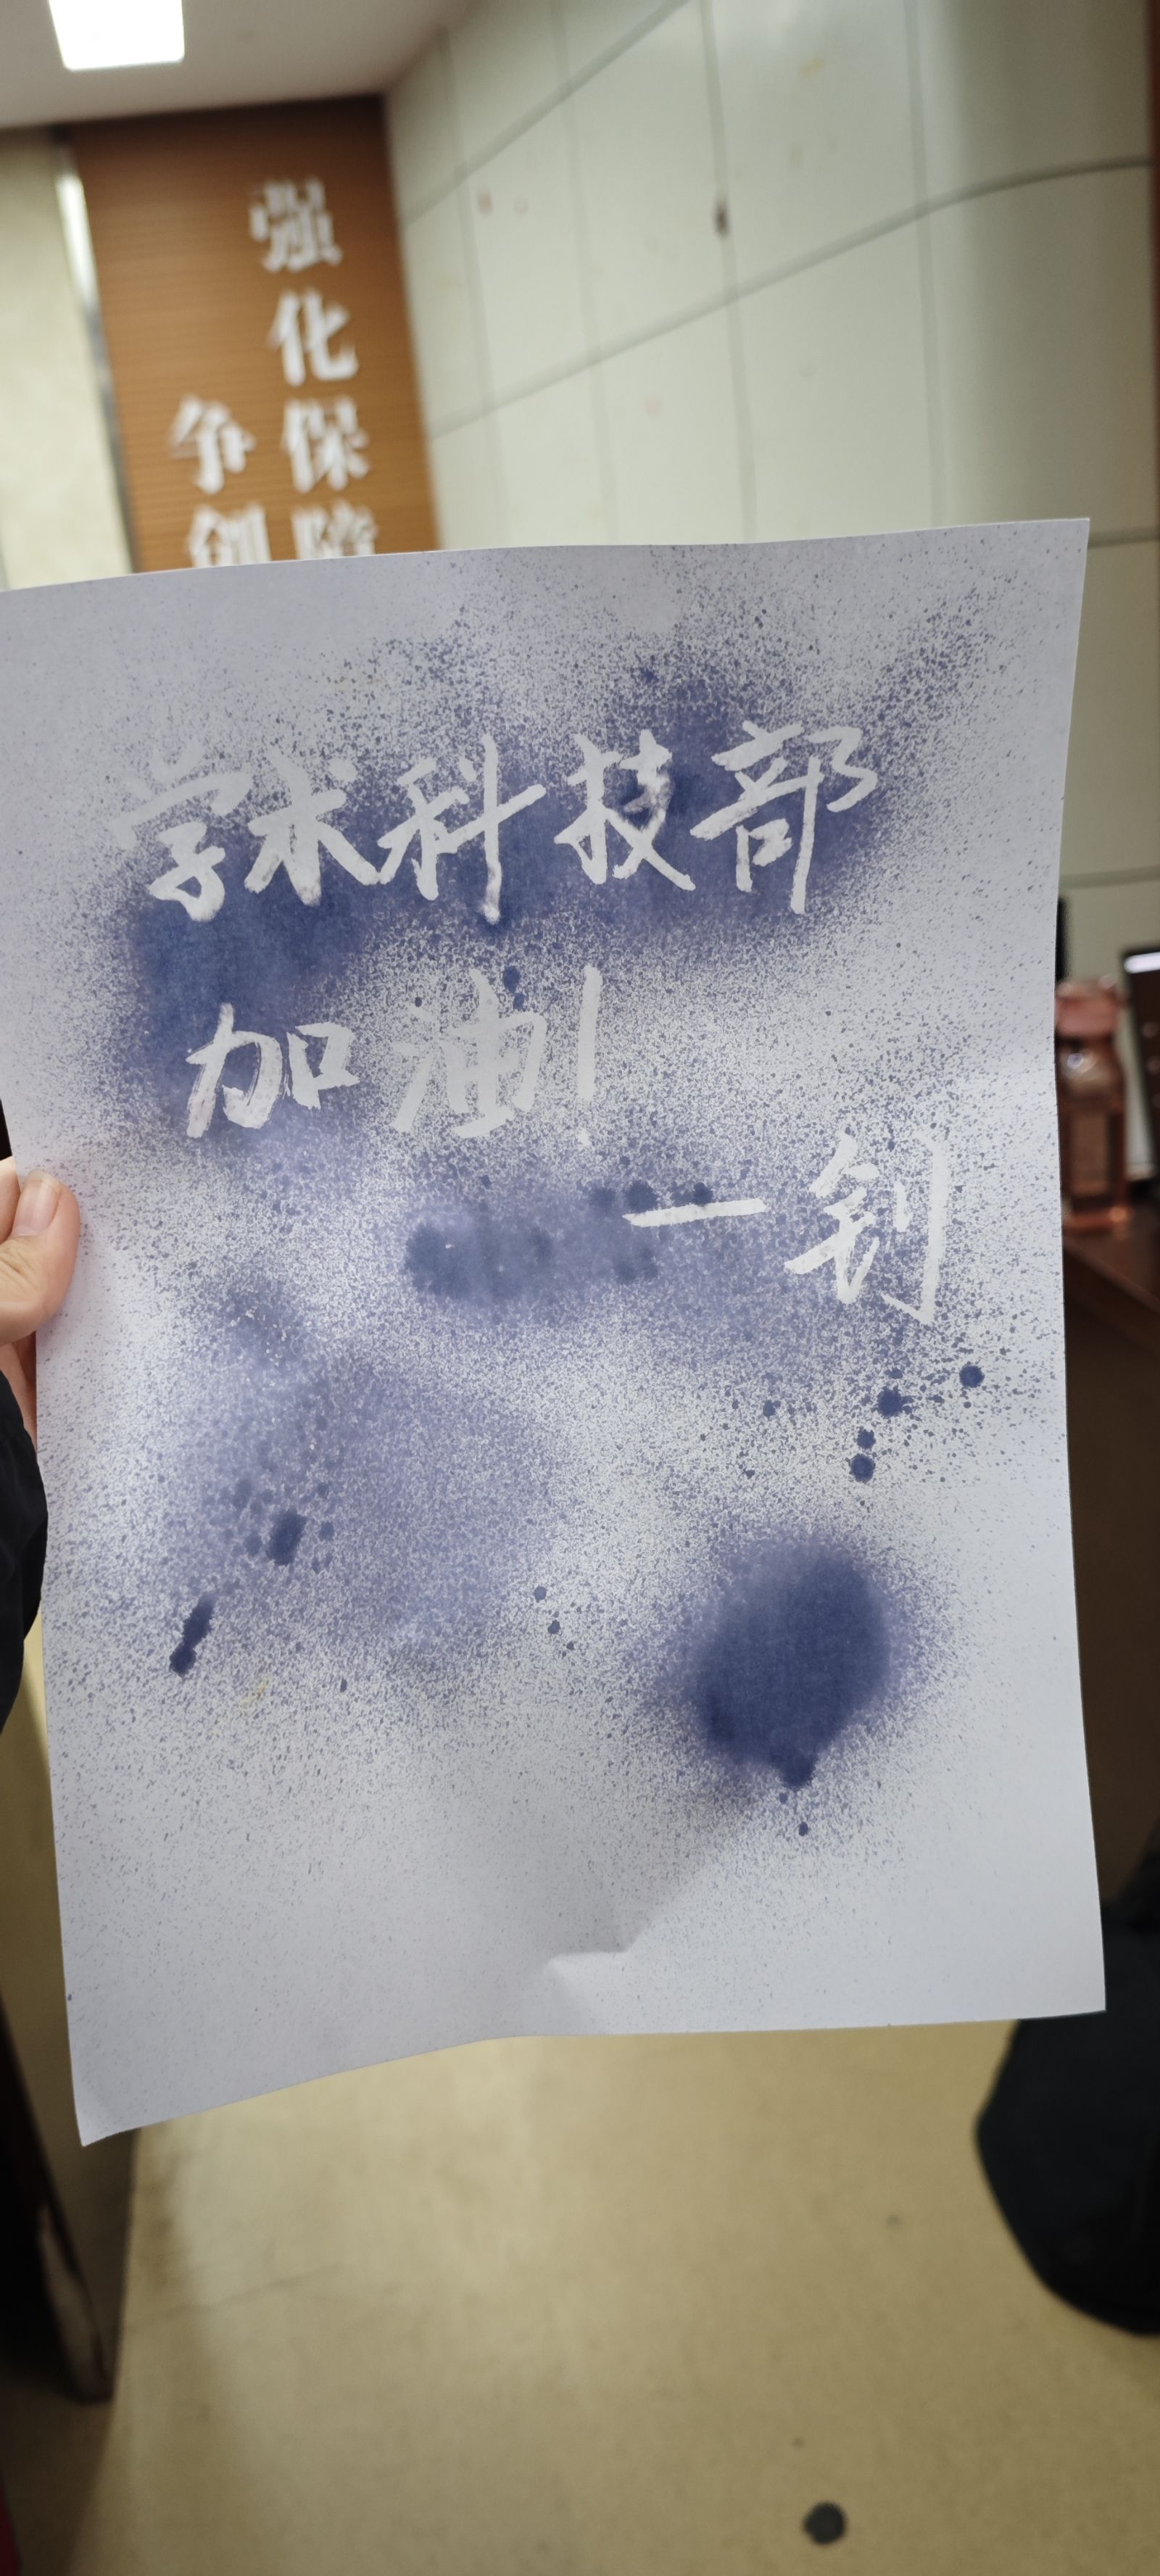 强化保障
争创
学术科技部
加油!
一钊